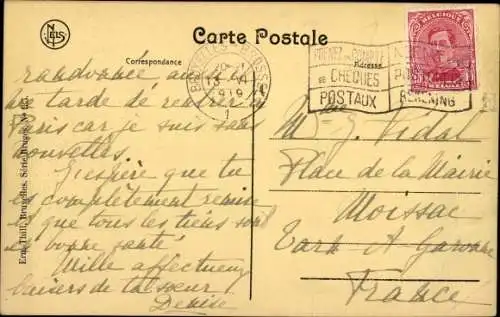 Carte Postale
Correspondance
Adresse
BRUXELLES - BRUSSEL
1919
1
PRENEZ UN COMPTE
CHÈQUES
POSTAUX
POST
REKENING
BELGIQUE
NELS
Ern. Thill, Bruxelles. Série Bruges, No
me tarde de rentrer à
Paris car je suis sans
nouvelles.
J'espère que tu
es complètement remise
et que tous les tiens sont
en bonne santé.
Mille affectueux
baisers de ta sœur
Denise
Vidal
Place de la Mairie
Moissac
Tarn & Garonne
France